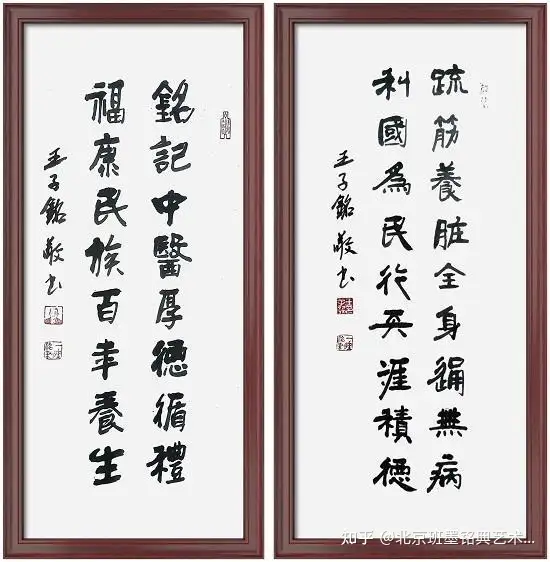 銘記中醫厚德循禮
福康民族百年養生
王子銘敬书
疏筋養脏全身通無病
利國為民行天涯積德
王子銘敬书
知乎 @北京班墨铭典艺术...